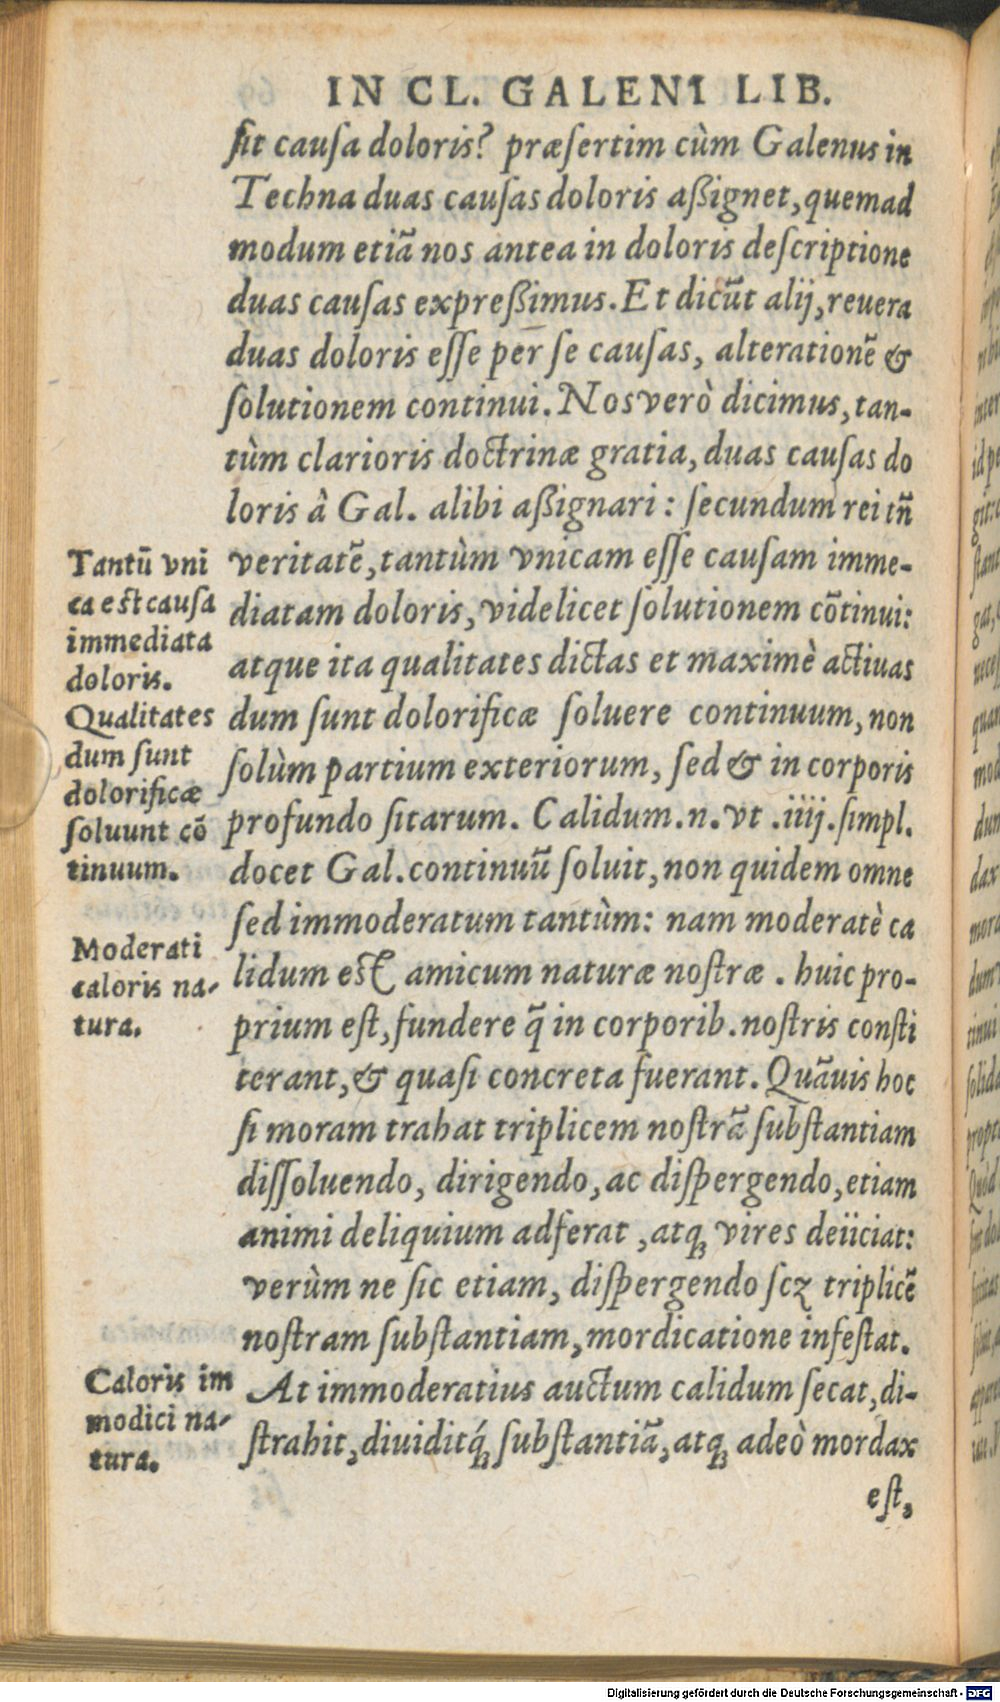 IN CL. GALENI LIB.
ſit cauſa doloris? præſertim cùm Galenus in
Techna duas cauſas doloris aßignet, quemad
modum etiã nos antea in doloris deſcriptione
duas cauſas expreßimus. Et dicũt alij, reuera
duas doloris eſſe per ſe cauſas, alterationẽ &
ſolutionem continui. Nos verò dicimus, tan-
tùm clarioris doctrinæ gratia, duas cauſas do
loris â Gal. alibi aßignari: ſecundum rei tñ
veritatẽ, tantùm vnicam eſſe cauſam imme-
diatam doloris, videlicet ſolutionem cõtinui:
atque ita qualitates dictas et maximè actiuas
dum ſunt dolorificæ ſoluere continuum, non
ſolùm partium exteriorum, ſed & in corporis
profundo ſitarum. Calidum .n. vt .iiij. ſimpl.
docet Gal. continuũ ſoluit, non quidem omne
ſed immoderatum tantùm: nam moderatè ca
lidum eſt amicum naturæ noſtræ . huic pro-
prium eſt, fundere q̃ in corporib. noſtris conſti
terant, & quaſi concreta fuerant. Quãuis hoc
ſi moram trahat triplicem noſtrã ſubſtantiam
diſſoluendo, dirigendo, ac diſpergendo, etiam
animi deliquium adferat , atq; vires deiiciat:
verùm ne ſic etiam, diſpergendo ſcꝫ triplicẽ
noſtram ſubſtantiam, mordicatione infeſtat.
At immoderatius auctum calidum ſecat, di-
ſtrahit, diuiditq́; ſubſtantiã, atq; adeò mordax
eſt,
Tantũ vni
ca eſt cauſa
immediata
doloris.
Qualitates
dum ſunt
dolorificæ
ſoluunt cõ
tinuum.
Moderati
caloris na-
tura.
Caloris im
modici na-
tura.
Digitalisierung gefördert durch die Deutsche Forschungsgemeinschaft - DFG